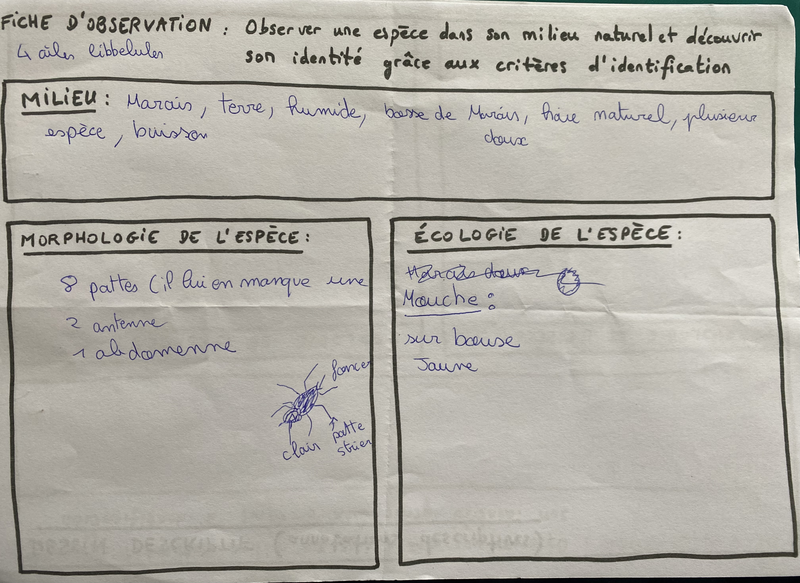 FICHE D'OBSERVATION : Observer une espèce dans son milieu naturel et découvrir
son identité grâce aux critères d'identification
4 ailes libbelules
MILIEU : Marais, terre, humide, basse de Marais, haie naturel, plusieur
doux
espèce, buisson
MORPHOLOGIE DE L'ESPÈCE :
8 pattes (il lui en manque une
2 antenne
1 abdomenne
foncer
clair
patte
strier
ÉCOLOGIE DE L'ESPÈCE :
Marais doux
Mouche :
sur bouse
Jaune
DESSIN DESCRIPTIF (annotations descriptives) :